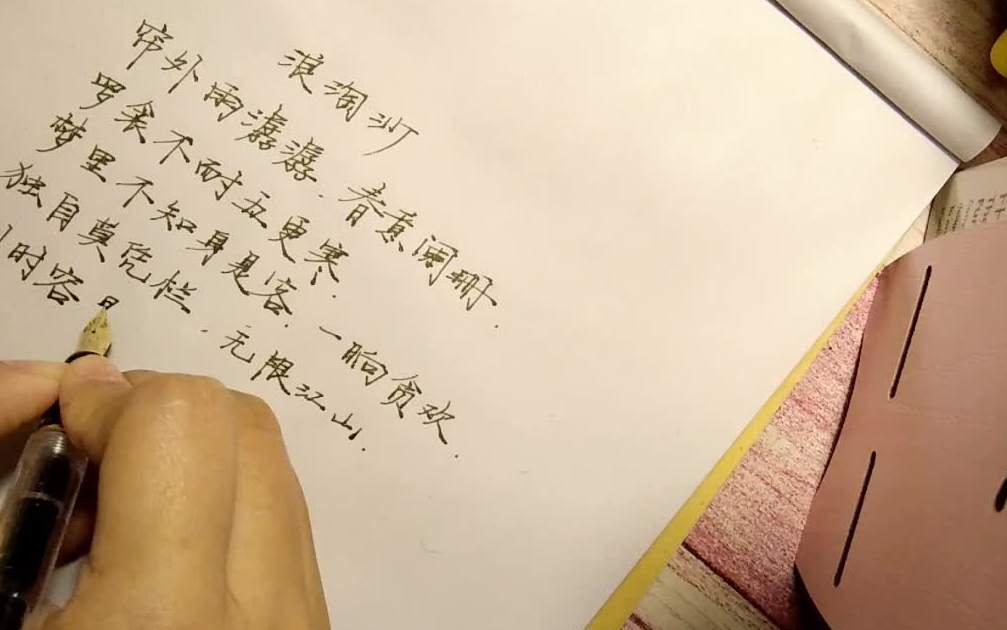 浪淘沙
帘外雨潺潺.春意阑珊.
罗衾不耐五更寒.
梦里不知身是客.一晌贪欢.
独自莫凭栏.无限江山.
别时容日